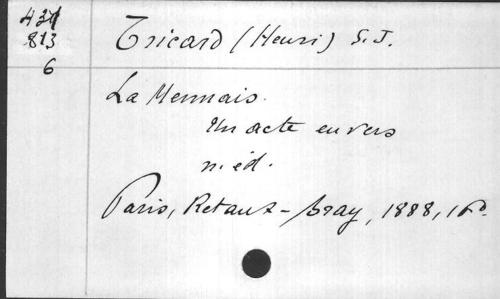 431
813
6
Tricard (Henri) S. J.
La Mennais.
Un acte en vers
n. éd.
Paris, Retaux-Bray, 1888, 16º.